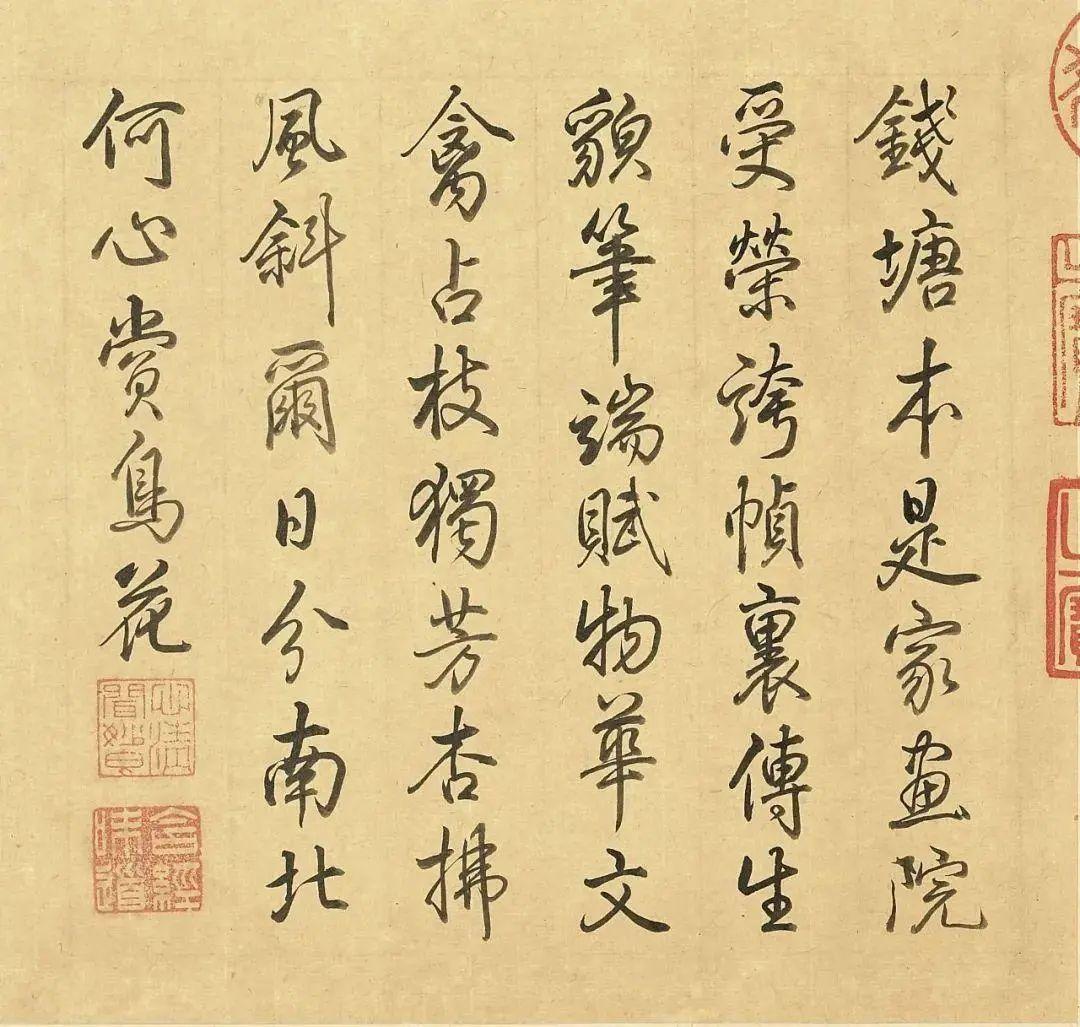 錢塘本是家畫院
受榮誇幀裏傳生
貌筆端賦物華文
禽占枝獨芳杏拂
風斜爾日分南北
何心賞鳥花